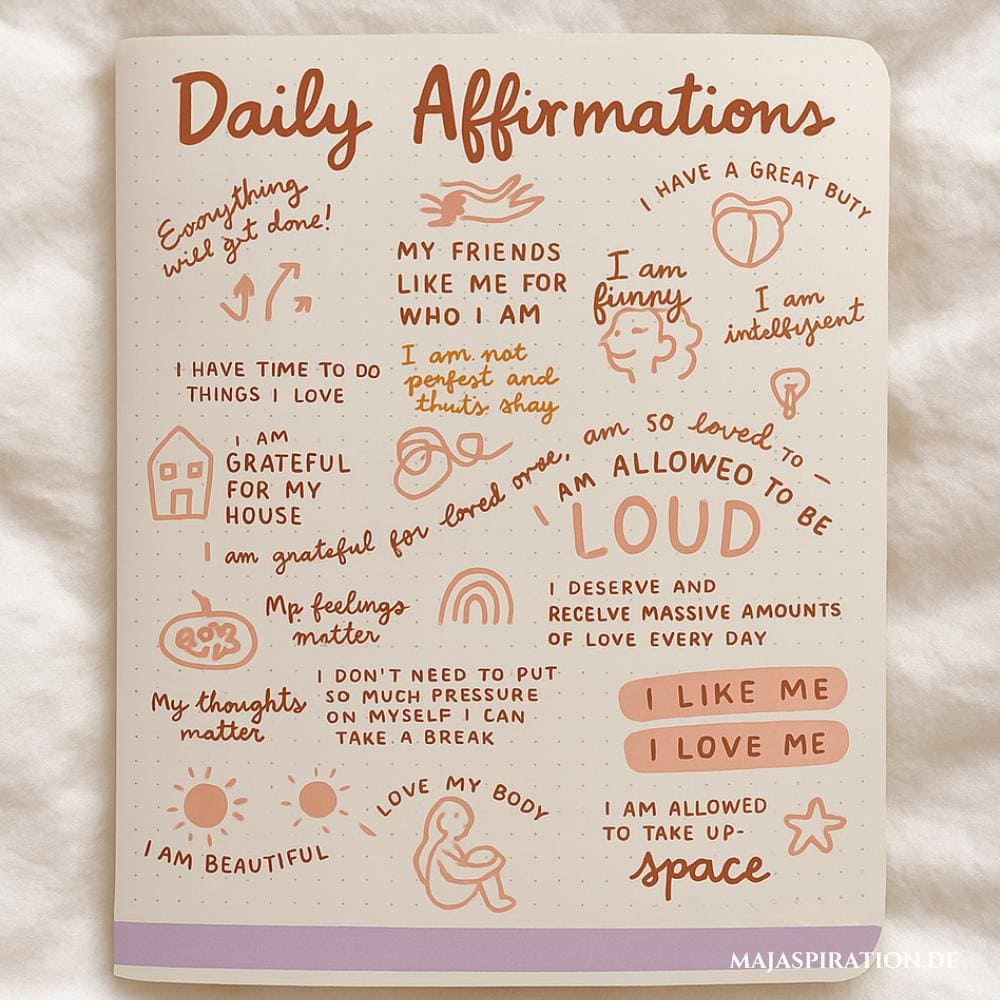 Daily Affirmations
Everything
will get done!
MY FRIENDS
LIKE ME FOR
WHO I AM
I HAVE A GREAT BUTY
I am
funny
I am
intelfyzient
I HAVE TIME TO DO
THINGS I LOVE
I am not
perfest and
thut's shay
I AM
GRATEFUL
FOR MY
HOUSE
I am grateful for loved orse,
am so loved to –
I AM ALLOWED TO BE
LOUD
Mp feelings
matter
I DESERVE AND
RECELVE MASSIVE AMOUNTS
OF LOVE EVERY DAY
My thoughts
matter
I DON'T NEED TO PUT
SO MUCH PRESSURE
ON MYSELF I CAN
TAKE A BREAK
I LIKE ME
I LOVE ME
I AM BEAUTIFUL
LOVE MY BODY
I AM ALLOWED
TO TAKE UP-
space
MAJASPIRATION.DE